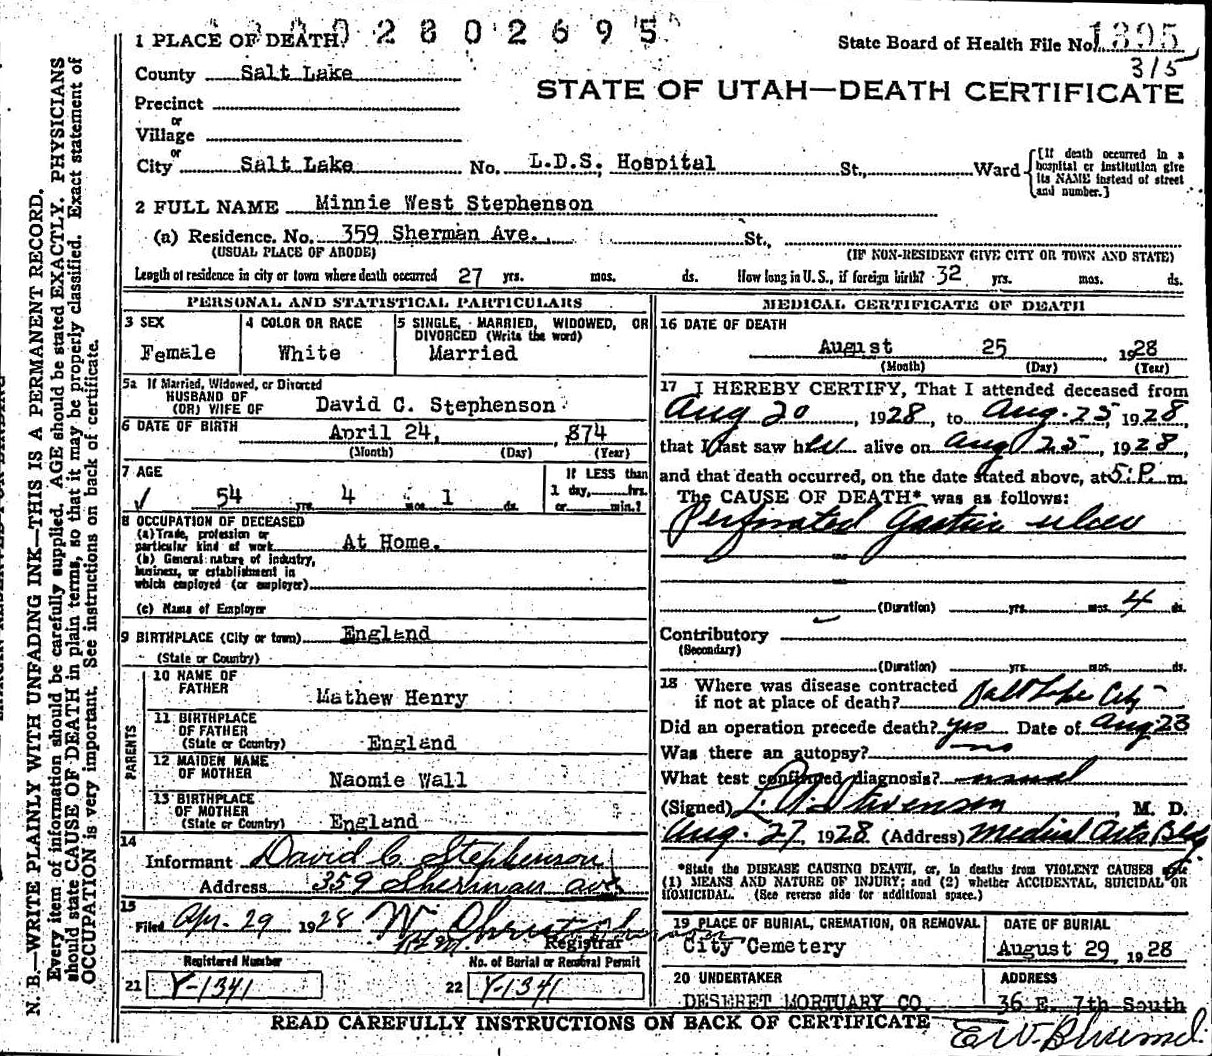 2802695
1 PLACE OF DEATH.
State Board of Health File No. 1895
315
County Salt Lake
STATE OF UTAH—DEATH CERTIFICATE
Precinct
or
Village
or
City Salt Lake No. L.D.S. Hospital St., Ward
[If death occurred in a hospital or institution give its NAME instead of street and number.]
2 FULL NAME Minnie West Stephenson
(a) Residence. No. 359 Sherman Ave. St.,
(USUAL PLACE OF ABODE) (IF NON-RESIDENT GIVE CITY OR TOWN AND STATE)
Length of residence in city or town where death occurred 27 yrs. mos. ds. How long in U.S., if foreign birth? 32 yrs. mos. ds.
PERSONAL AND STATISTICAL PARTICULARS
3 SEX
Female
4 COLOR OR RACE
White
5 SINGLE, MARRIED, WIDOWED, OR
DIVORCED (Write the word)
Married
5a If Married, Widowed, or Divorced
HUSBAND OF
(OR) WIFE OF David C. Stephenson
6 DATE OF BIRTH April 24, 874
(Month) (Day) (Year)
7 AGE
54 yrs. 4 mos. 1 ds.
If LESS than
1 day, hrs.
or min.?
8 OCCUPATION OF DECEASED
(a) Trade, profession or
particular kind of work At Home.
(b) General nature of industry,
business, or establishment in
which employed (or employer)
(c) Name of Employer
9 BIRTHPLACE (City or town) England
(State or Country)
PARENTS
10 NAME OF
FATHER Mathew Henry
11 BIRTHPLACE
OF FATHER
(State or Country) England
12 MAIDEN NAME
OF MOTHER Naomie Wall
13 BIRTHPLACE
OF MOTHER
(State or Country) England
14
Informant David C. Stephenson
Address 359 Sherman ave
15
Filed Apr. 29 1928
Registrar
Registered Number No. of Burial or Removal Permit
21 Y-1341 22 Y-1341
MEDICAL CERTIFICATE OF DEATH
16 DATE OF DEATH
August 25 1928
(Month) (Day) (Year)
17 I HEREBY CERTIFY, That I attended deceased from
Aug 20 1928, to Aug. 25, 1928,
that I last saw her alive on Aug 25, 1928,
and that death occurred, on the date stated above, at 5 P. m.
The CAUSE OF DEATH* was as follows:
Perforated Gastric ulcer
(Duration) yrs. mos. 4 ds.
Contributory
(Secondary)
(Duration) yrs. mos. ds.
18 Where was disease contracted
if not at place of death? Salt Lake City
Did an operation precede death? yes Date of Aug 23
Was there an autopsy? no
What test confirmed diagnosis? usual
(Signed) Stevenson M. D.
Aug. 27, 1928 (Address) Medical Arts Bldg.
*State the DISEASE CAUSING DEATH, or, in deaths from VIOLENT CAUSES state
(1) MEANS AND NATURE OF INJURY; and (2) whether ACCIDENTAL, SUICIDAL OR
HOMICIDAL. (See reverse side for additional space.)
19 PLACE OF BURIAL, CREMATION, OR REMOVAL
City Cemetery
DATE OF BURIAL
August 29, 1928
20 UNDERTAKER
DESERET MORTUARY CO.
ADDRESS
36 E. 7th South
READ CAREFULLY INSTRUCTIONS ON BACK OF CERTIFICATE
N. B.—WRITE PLAINLY WITH UNFADING INK—THIS IS A PERMANENT RECORD.
Every item of information should be carefully supplied. AGE should be stated EXACTLY. PHYSICIANS
should state CAUSE OF DEATH in plain terms, so that it may be properly classified. Exact statement of
OCCUPATION is very important. See instructions on back of certificate.